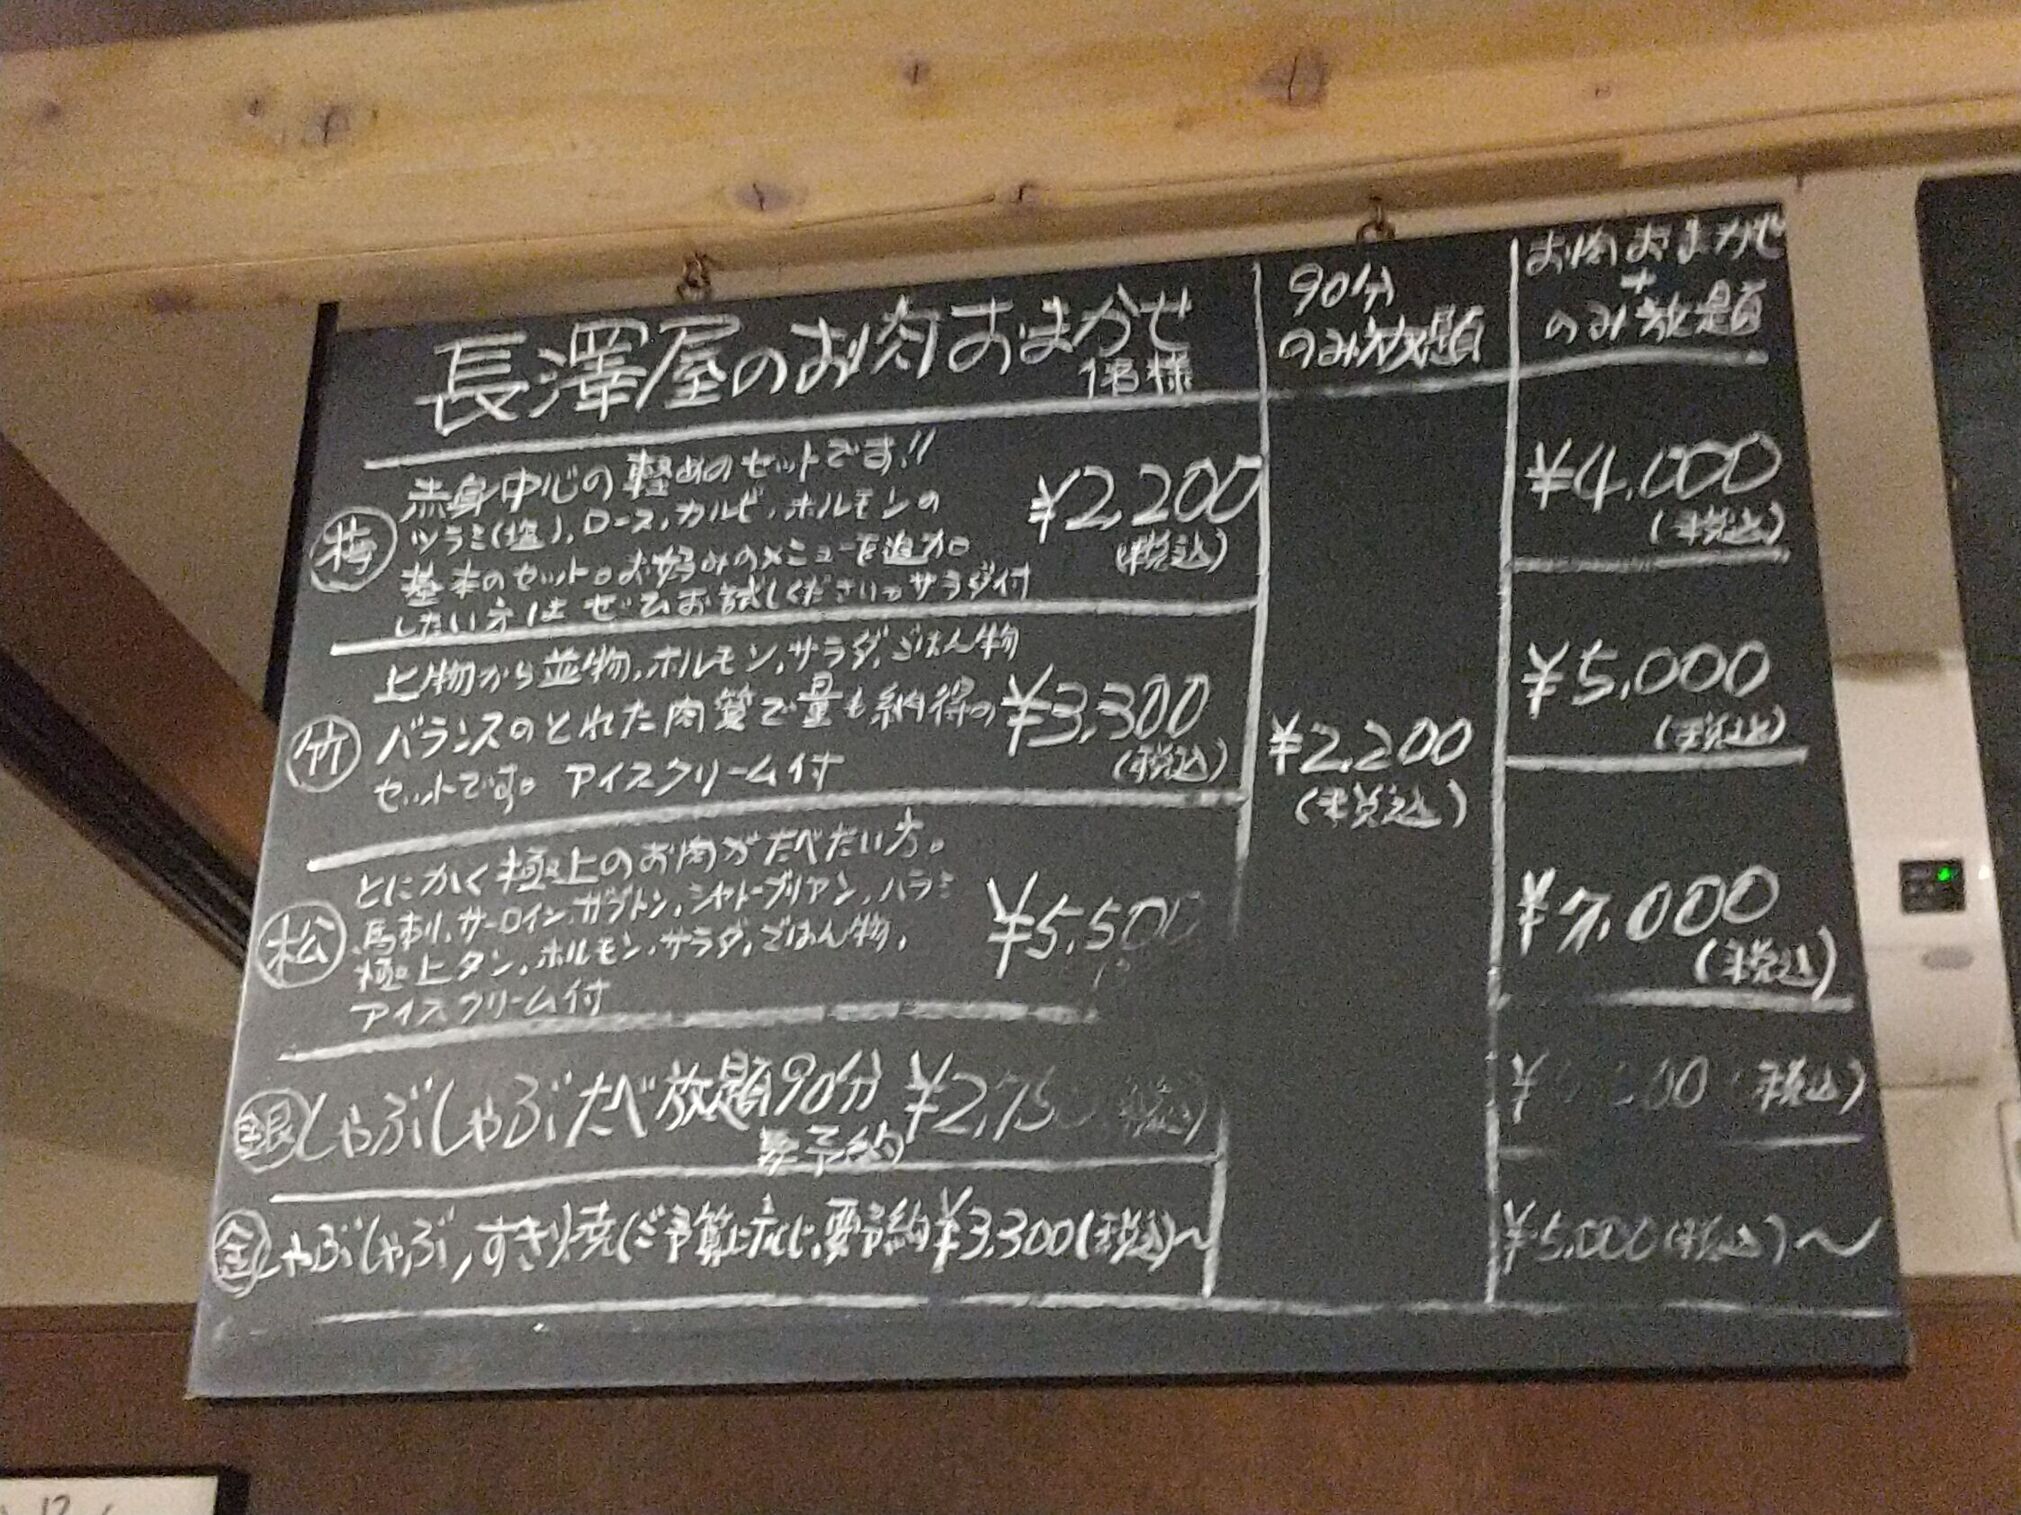 長澤屋のお肉おまかせ
1名様
90分
のみ放題
お肉おまかせ
+
のみ放題
梅
赤身中心の軽めのセットです!!
ツラミ(塩)、ロース、カルビ、ホルモンの
基本のセット。お好みのメニューを追加。
したい方はぜひお試しください。サラダ付
¥2,200
(税込)
¥4,000
(税込)
竹
上物から並物、ホルモン、サラダ、ごはん物
バランスのとれた肉質で量も納得の
セットです。 アイスクリーム付
¥3,300
(税込)
¥2,200
(税込)
¥5,000
(税込)
松
とにかく極上のお肉がたべたい方。
馬刺、サーロイン、カブトン、シャトーブリアン、ハラミ
極上タン、ホルモン、サラダ、ごはん物、
アイスクリーム付
¥5,500
¥7,000
(税込)
銀 しゃぶしゃぶたべ放題90分 ¥2,75 (税込)
要予約
(税込)
金 しゃぶしゃぶ、すき焼(ご予算に応じ、要予約 ¥3,300(税込)〜
¥5,000(税込)〜